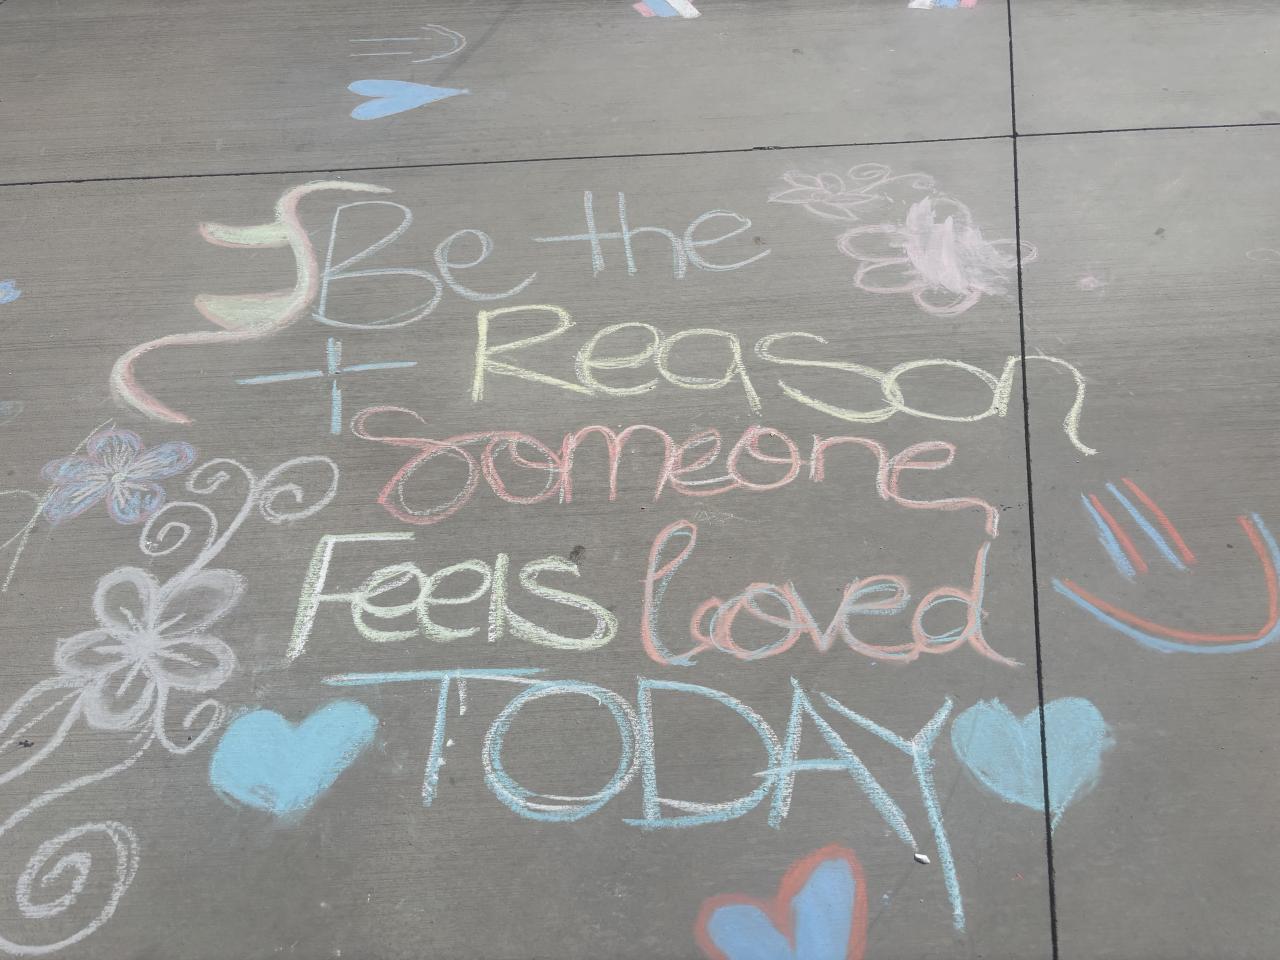 Be the
Reason
Someone
Feels loved
TODAY